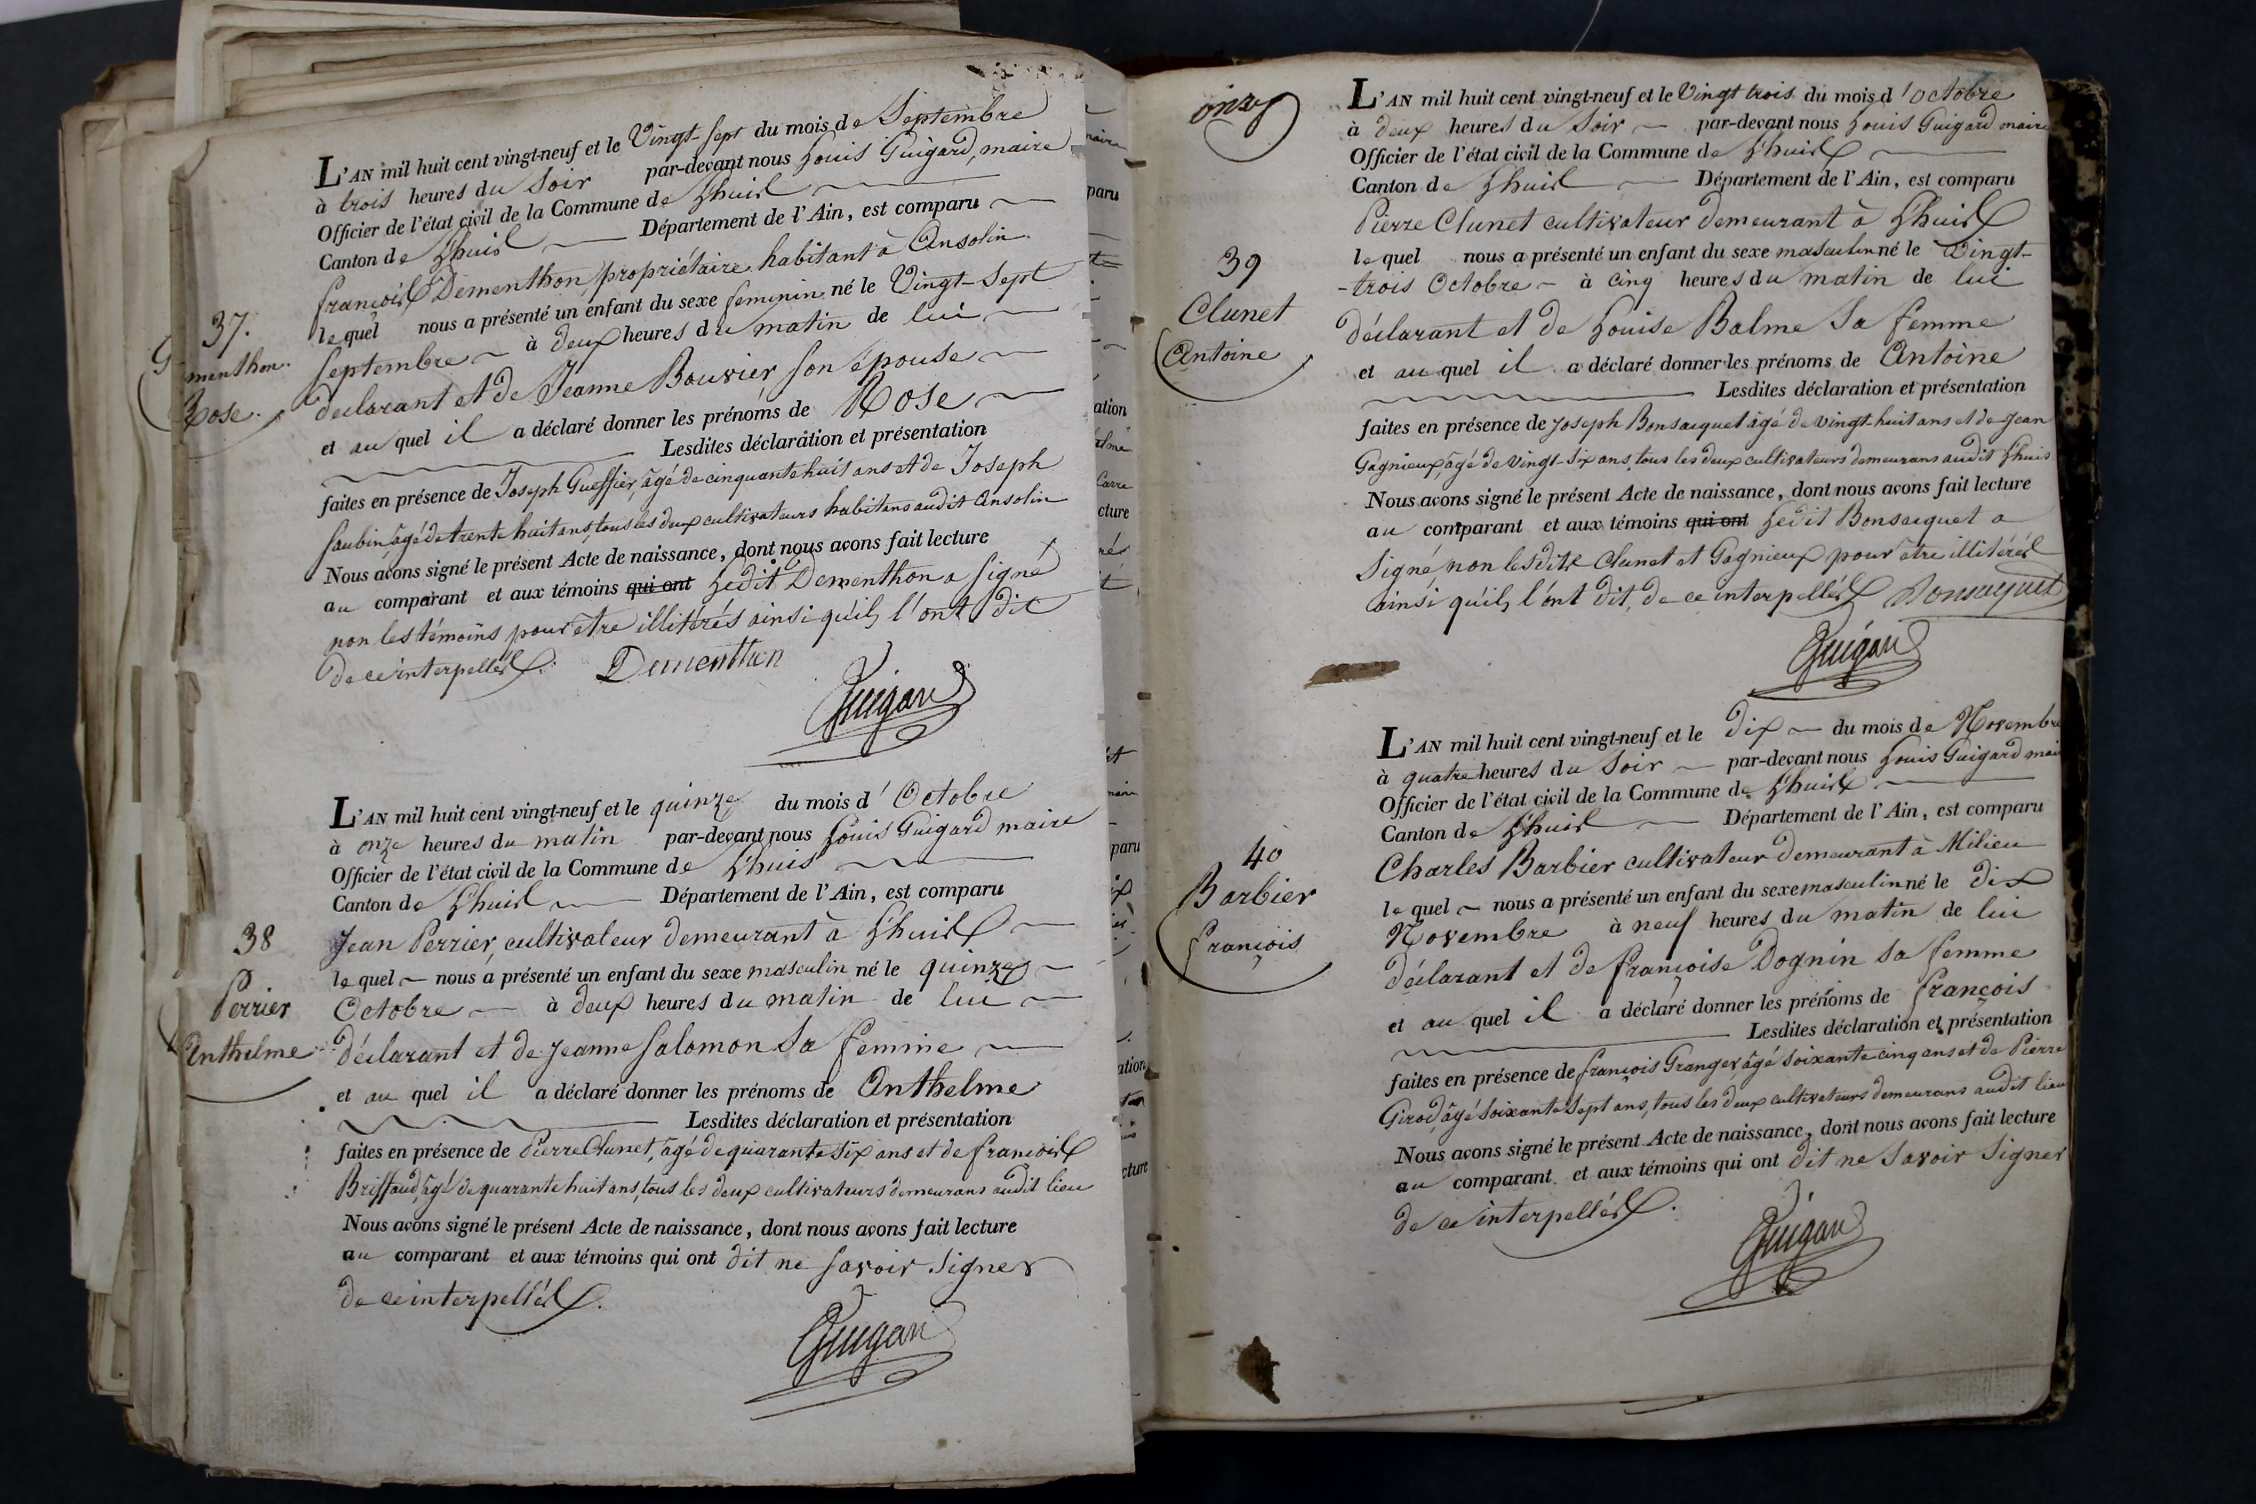 L'AN mil huit cent vingt-neuf et le Vingt-Sept du mois de Septembre
à trois heures du Soir par-devant nous Louis Guigard, maire
Officier de l'état civil de la Commune de Lhuis
Canton de Lhuis Département de l'Ain, est comparu
françois Dementhon, propriétaire habitant à Ansolin
37.
menthon.
Rose.
lequel nous a présenté un enfant du sexe feminin né le Vingt-Sept
Septembre à deux heures du matin de lui
declarant et de Jeanne Bouvier son épouse
et au quel il a déclaré donner les prénoms de Rose
Lesdites déclaration et présentation
faites en présence de Joseph Gueffier, âgé de cinquante huit ans et de Joseph
Saubin, âgé de trente huit ans, tous les deux cultivateurs habitans audit Ansolin
Nous avons signé le présent Acte de naissance, dont nous avons fait lecture
au comparant et aux témoins qui ont Ledit Dementhon a signé
non les témoins pour etre illitérés ainsi qu'ils l'ont dit
de ce interpellés.
Dementhon
Guigard
L'AN mil huit cent vingt-neuf et le quinze du mois d'Octobre
à onze heures du matin par-devant nous Louis Guigard maire
Officier de l'état civil de la Commune de Lhuis
Canton de Lhuis Département de l'Ain, est comparu
38
Perrier
Anthelme
Jean Perrier, cultivateur demeurant à Lhuis
lequel nous a présenté un enfant du sexe masculin né le quinze
Octobre à deux heures du matin de lui
déclarant et de Jeanne Salomon sa femme
et au quel il a déclaré donner les prénoms de Anthelme
Lesdites déclaration et présentation
faites en présence de Pierre Clunet, âgé de quarante six ans et de francois
Briffaud, âgé de quarante huit ans, tous les deux cultivateurs demeurans audit lieu
Nous avons signé le présent Acte de naissance, dont nous avons fait lecture
au comparant et aux témoins qui ont dit ne savoir signer
de ce interpellés.
Guigard
onze
L'AN mil huit cent vingt-neuf et le Vingt trois du mois d'octobre
à deux heures du Soir par-devant nous Louis Guigard maire
Officier de l'état civil de la Commune de Lhuis
Canton de Lhuis Département de l'Ain, est comparu
Pierre Clunet cultivateur demeurant à Lhuis
39
Clunet
Antoine
lequel nous a présenté un enfant du sexe masculin né le Vingt-
-trois Octobre à cinq heures du matin de lui
déclarant et de Louise Balme sa femme
et au quel il a déclaré donner les prénoms de Antoine
Lesdites déclaration et présentation
faites en présence de Joseph Bonsacquet âgé de vingt-huit ans et de Jean
Gagnieux, âgé de vingt-six ans, tous les deux cultivateurs demeurans audit Lhuis
Nous avons signé le présent Acte de naissance, dont nous avons fait lecture
au comparant et aux témoins qui ont Ledit Bonsacquet a
signé non lesdits Clunet et Gagnieux pour être illitérés
ainsi qu'ils l'ont dit, de ce interpellés
Bonsacquet
Guigard
L'AN mil huit cent vingt-neuf et le dix du mois de Novembre
à quatre heures du Soir par-devant nous Louis Guigard mair
Officier de l'état civil de la Commune de Lhuis
Canton de Lhuis Département de l'Ain, est comparu
40
Barbier
françois
Charles Barbier cultivateur demeurant à Milieu
lequel nous a présenté un enfant du sexe masculin né le dix
Novembre à neuf heures du matin de lui
déclarant et de françoise Dognin sa femme
et au quel il a déclaré donner les prénoms de françois
Lesdites déclaration et présentation
faites en présence de françois Granger, âgé soixante cinq ans et de Pierre
Girod, âgé soixante sept ans, tous les deux cultivateurs demeurans audit lieu
Nous avons signé le présent Acte de naissance, dont nous avons fait lecture
au comparant et aux témoins qui ont dit ne savoir signer
de ce interpellés.
Guigard